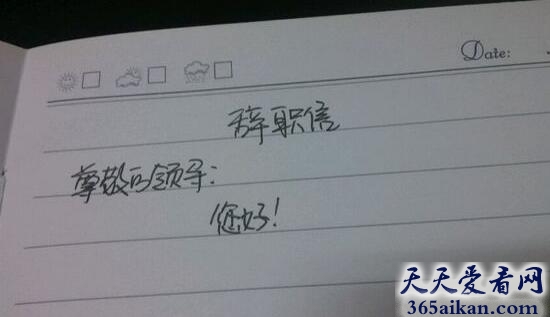 Date:
辞职信
尊敬的领导：
您好！
天天爱看网
365aikan.com